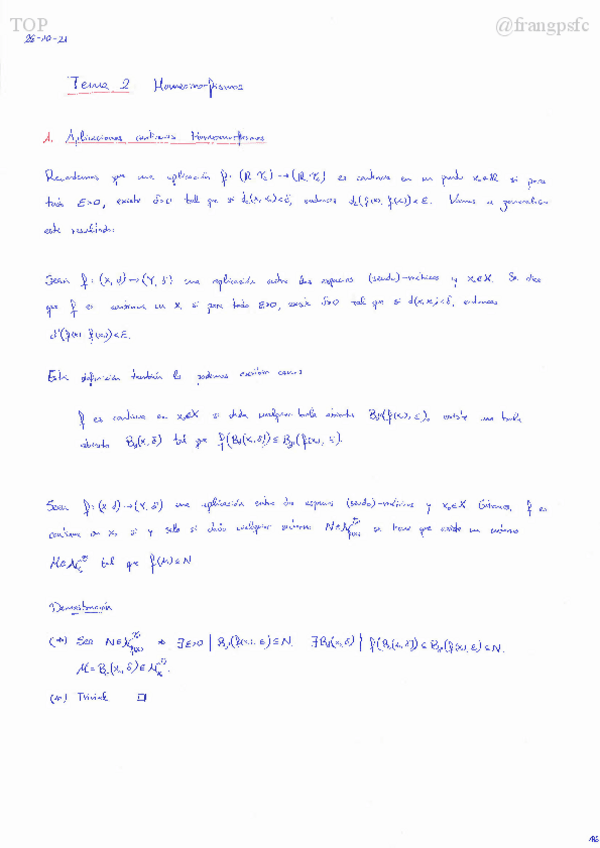 TOP
@frangpsfc
26-10-21
Tema 2 Homeomorfismos
1. Aplicaciones continuas Homeomorfismos
Recordemos que una aplicación f: (ℝ τ) → (ℝ τ) es continua en un punto x₀∈ℝ si para
todo ε>0, existe δ>0 tal que si d(x, x₀)<δ, entonces d(f(x), f(x₀))<ε. Vamos a generalizar
este resultado:
Sean f: (X, d) → (Y, d') una aplicación entre dos espacios (seudo)-métricos y x₀∈X. Se dice
que f es continua en x₀ si para todo ε>0, existe δ>0 tal que si d(x, x₀)<δ, entonces
d'(f(x), f(x₀))<ε.
Esta definición también la podemos escribir como:
f es continua en x₀∈X si dada cualquier bola abierta B(f(x₀), ε), existe una bola
abierta B(x₀, δ) tal que f(B(x₀, δ)) ⊆ B(f(x₀), ε).
Sean f: (X d) → (Y, d') una aplicación entre dos espacios (seudo)-métricos y x₀∈X Entonces, f es
continua en x₀ si y solo si dado cualquier entorno N∈ se tiene que existe un entorno
M∈ tal que f(M)⊆N
Demostración
Sea N∈ ∃ε>0 | B(f(x₀), ε) ⊆ N. ∃B(x₀, δ) | f(B(x₀, δ)) ⊆ B(f(x₀), ε) ⊆ N.
M = B(x₀, δ) ∈
Trivial □